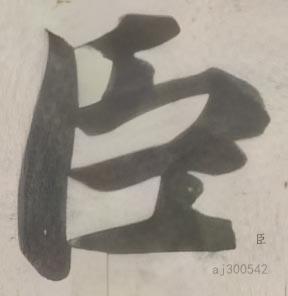 臣
臣
aj300542